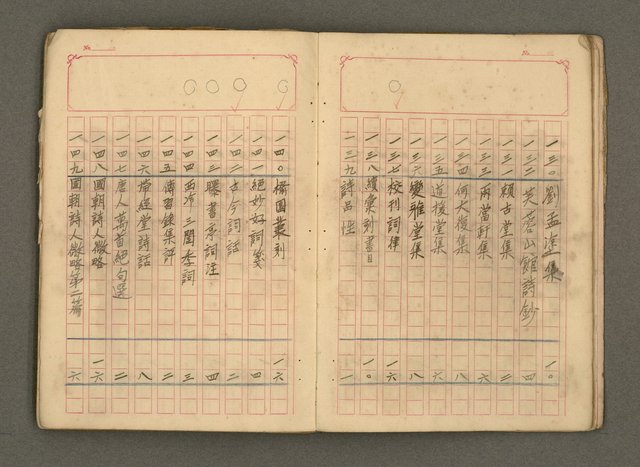 No.
一三〇 劉孟塗集 一〇
一三一 芙蓉山館詩鈔 二
一三二 賴古堂集 四
一三三 兩當軒集 六
一三四 何大復集 八
一三五 道援堂集 六
一三六 變雅堂集 八
一三七 校刊詞律 一六
一三八 彙刻書目 一〇
一三九 詩品 一
No.
一四〇 橋園叢刻 一六
一四一 絕妙好詞箋 四
一四二 古今詞話 二
一四三 曝書亭詞注 四
一四四 西泠三閨秀詞 三
一四五 傳習錄集評 二
一四六 帶經堂詩話 八
一四七 唐人萬首絕句選 二
一四八 國朝詩人徵略 一六
一四九 國朝詩人徵略第二篇 六